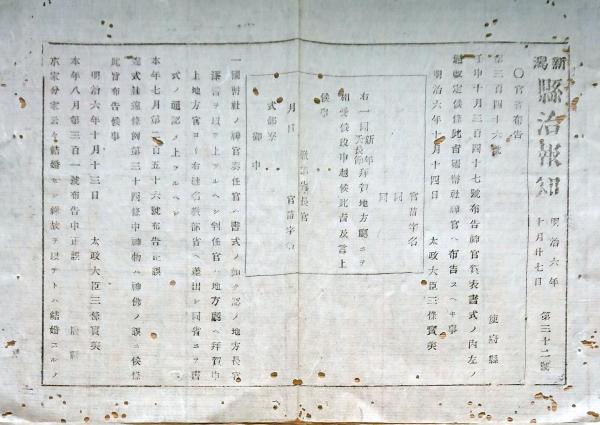 新潟
縣治報知
明治六年
十月廿七日
第三十二號
〇官省布告
第三百四十六號
使府縣
壬申十月三百四十七號布告神官賀表書式ノ内左ノ
通改定候條此旨國幣社神官ヘ布告スヘキ事
明治六年十月十四日
太政大臣三條實美
官苗字名
同
同
右一同新年拜賀地方廳ニヲ
天長節
相受候段申越候此旨及言上
候事
教部省長官
月日
官苗字名
式部寮
御中
一國幣社ノ神官奏任官ハ書式ノ如ク認メ地方長官
上地方官ヨリ
教部省ヘ差出シ同省ニヲ書
式ノ通認メ上ツルヘシ
本年七月第二百五十六號布告正誤
違式詿違條例第三十四條中神物ハ神佛ノ誤ニ候條
此旨布告候事
明治六年十月十三日
太政大臣三條實美
本年八月第三百一號布告中正誤
本家分家
結婚
ヲ以テトハ結婚スルノ